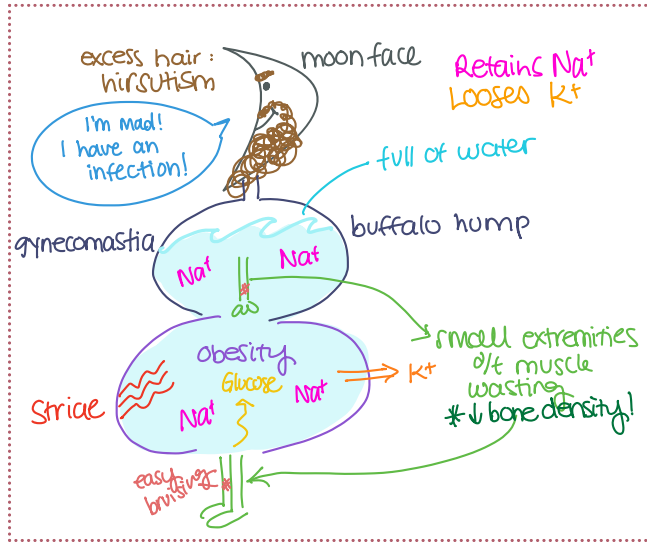 excess hair:
hirsutism
moon face
Retains Na⁺
Looses K⁺
I'm mad!
I have an
infection!
full of water
gynecomastia
buffalo hump
Na⁺
Na⁺
small extremities
d/t muscle
wasting
*↓ bone density!
obesity
Glucose
Na⁺
Na⁺
K⁺
Striae
easy
bruising
*
*